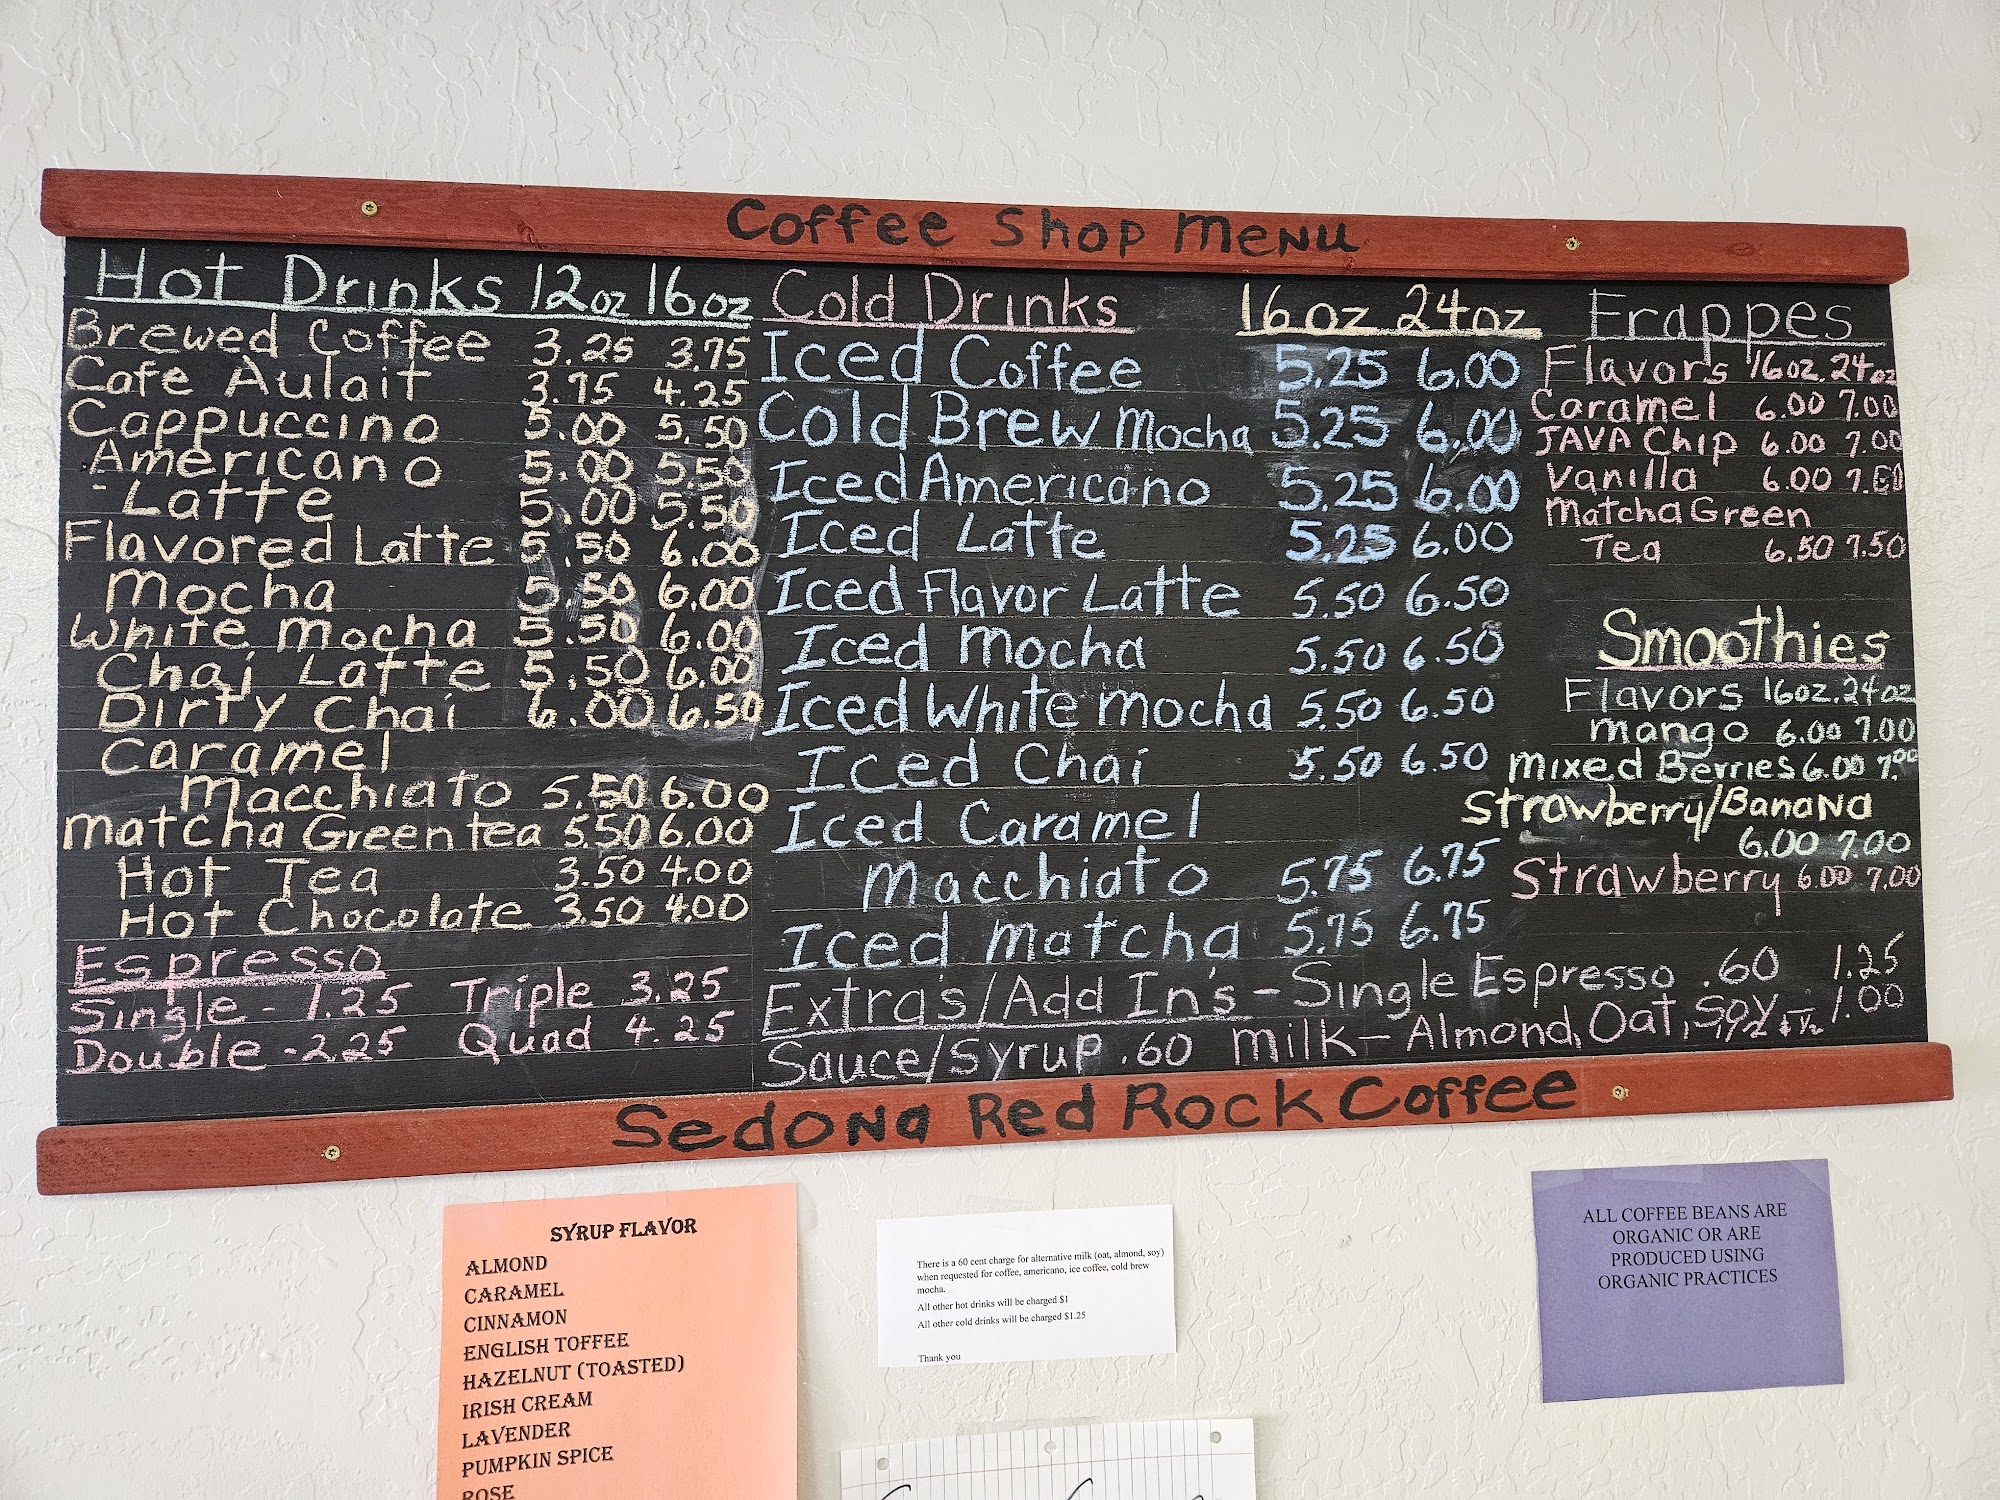 Coffee Shop Menu
Hot Drinks 12oz 16oz
Brewed Coffee 3.25 3.75
Cafe Aulait 3.75 4.25
Cappuccino 5.00 5.50
Americano 5.00 5.50
Latte 5.00 5.50
Flavored Latte 5.50 6.00
Mocha 5.50 6.00
White Mocha 5.50 6.00
Chai Latte 5.50 6.00
Dirty Chai 6.00 6.50
Caramel
Macchiato 5.50 6.00
Matcha Green tea 5.50 6.00
Hot Tea 3.50 4.00
Hot Chocolate 3.50 4.00
Espresso
Single - 1.25 Triple 3.25
Double - 2.25 Quad 4.25
Cold Drinks 16oz 24oz
Iced Coffee 5.25 6.00
Cold Brew Mocha 5.25 6.00
Iced Americano 5.25 6.00
Iced Latte 5.25 6.00
Iced Flavor Latte 5.50 6.50
Iced Mocha 5.50 6.50
Iced White Mocha 5.50 6.50
Iced Chai 5.50 6.50
Iced Caramel
Macchiato 5.75 6.75
Iced Matcha 5.75 6.75
Frappes
Flavors 16oz. 24oz
Caramel 6.00 7.00
JAVA Chip 6.00 7.00
Vanilla 6.00
Matcha Green
Tea 6.50 7.50
Smoothies
Flavors 16oz. 24oz
Mango 6.00 7.00
Mixed Berries 6.00 7.00
Strawberry/Banana
6.00 7.00
Strawberry 6.00 7.00
Extra's/Add In's - Single Espresso .60 1.25
Sauce/Syrup .60 Milk - Almond, Oat, Soy 1.00
Sedona Red Rock Coffee
SYRUP FLAVOR
ALMOND
CARAMEL
CINNAMON
ENGLISH TOFFEE
HAZELNUT (TOASTED)
IRISH CREAM
LAVENDER
PUMPKIN SPICE
ROSE
There is a 60 cent charge for alternative milk (oat, almond, soy)
when requested for coffee, americano, ice coffee, cold brew
mocha.
All other hot drinks will be charged $1
All other cold drinks will be charged $1.25
Thank you
ALL COFFEE BEANS ARE
ORGANIC OR ARE
PRODUCED USING
ORGANIC PRACTICES